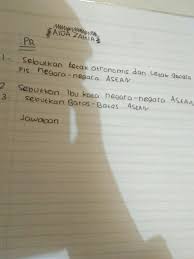 AIDA ZAHRA
PR
1. Sebutkan letak astronomis dan letak geogra
Fis negara-negara ASEAN
2 Sebutkan Ibu kota negara-negara ASEAN
3 sebutkan Batas-Batas ASEAN
Jawapan